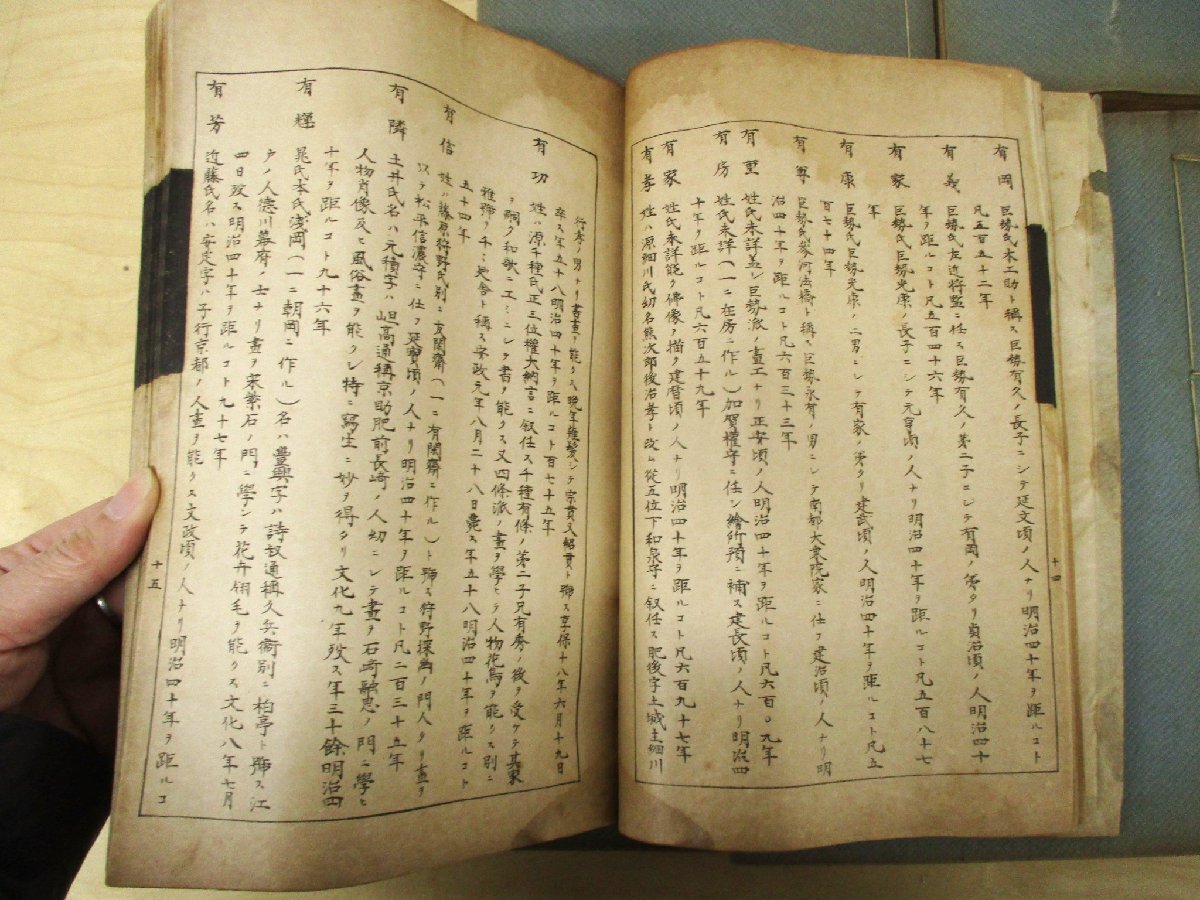 有岡 巨勢氏木工助ト稱ス巨勢有久ノ長子ニシテ延文頃ノ人ナリ明治四十年ヲ距ルコト
凡五百五十二年
有義 巨勢氏左近將監ニ任ス巨勢有久ノ第二子ニシテ有岡ノ弟タリ貞治頃ノ人明治四十
年ヲ距ルコト凡五百四十六年
有家 巨勢氏巨勢光康ノ長子ニシテ元亨頃ノ人ナリ明治四十年ヲ距ルコト凡五百八十七
年
有康 巨勢氏巨勢光康ノ二男ニシテ有家ノ弟タリ建武頃ノ人明治四十年ヲ距ルコト凡五
百七十四年
有尊 巨勢氏參河法橋ト稱ス巨勢永有ノ男ニシテ南都大乘院家ニ仕フ建治頃ノ人ナリ明
治四十年ヲ距ルコト凡六百三十三年
有重 姓氏未詳蓋シ巨勢派ノ畫工ナリ正安頃ノ人明治四十年ヲ距ルコト凡六百〇九年
有房 姓氏未詳(一ニ在房ニ作ル)加賀權守ニ任シ繪所預ニ補ス建長頃ノ人ナリ明治四
十年ヲ距ルコト凡六百五十九年
有家 姓氏未詳能ク佛像ヲ描ク建暦頃ノ人ナリ明治四十年ヲ距ルコト凡六百九十七年
有孝 姓ハ源細川氏幼名熊次郎後治孝ト改ム從五位下和泉守ニ叙任ス肥後宇土城主細川
十四
行孝ノ男ナリ書畫ヲ能クス晩年薙髮シテ宗貫又紹貫ト號ス享保十八年六月十九日
卒ス年五十八明治四十年ヲ距ルコト百七十五年
有功 姓ハ源千種氏正三位權大納言ニ叙任ス千種有條ノ第二子兄有秀ノ後ヲ受ケテ其家
ヲ嗣ク和歌ニエミニシテ書ヲ能クス又四條派ノ畫ヲ學ヒテ人物花鳥ヲ能クス別ニ
雅號ヲ千々廼舍ト稱ス安政元年八月二十八日薨ス年五十八明治四十年ヲ距ルコト
五十四年
有信 姓ハ藤原狩野氏別ニ友閑齋(一ニ有閑齋ニ作ル)ト號ス狩野探幽ノ門人タリ畫ヲ
以テ松平信濃守ニ仕フ延寶頃ノ人ナリ明治四十年ヲ距ルコト凡二百三十五年
有隣 土井氏名ハ元積字ハ 高通稱京助肥前長崎ノ人幼ニシテ畫ヲ石崎融思ノ門ニ學ヒ
人物肖像及ヒ風俗畫ヲ能クシ特ニ寫生ニ妙ヲ得タリ文化九年歿ス年三十餘明治四
十年ヲ距ルコト九十六年
有輝 晁氏本氏淺岡(一ニ朝岡ニ作ル)名ハ豊興字ハ詩叔通稱久兵衞別ニ柏亭ト號ス江
戸ノ人徳川幕府ノ士ナリ畫ヲ菜蘩石ノ門ニ學ンテ花卉翎毛ヲ能クス文化八年七月
四日歿ス明治四十年ヲ距ルコト九十七年
有芳 近藤氏名ハ安定字ハ子行京都ノ人畫ヲ能クス文政頃ノ人ナリ明治四十年ヲ距ルコ
十五